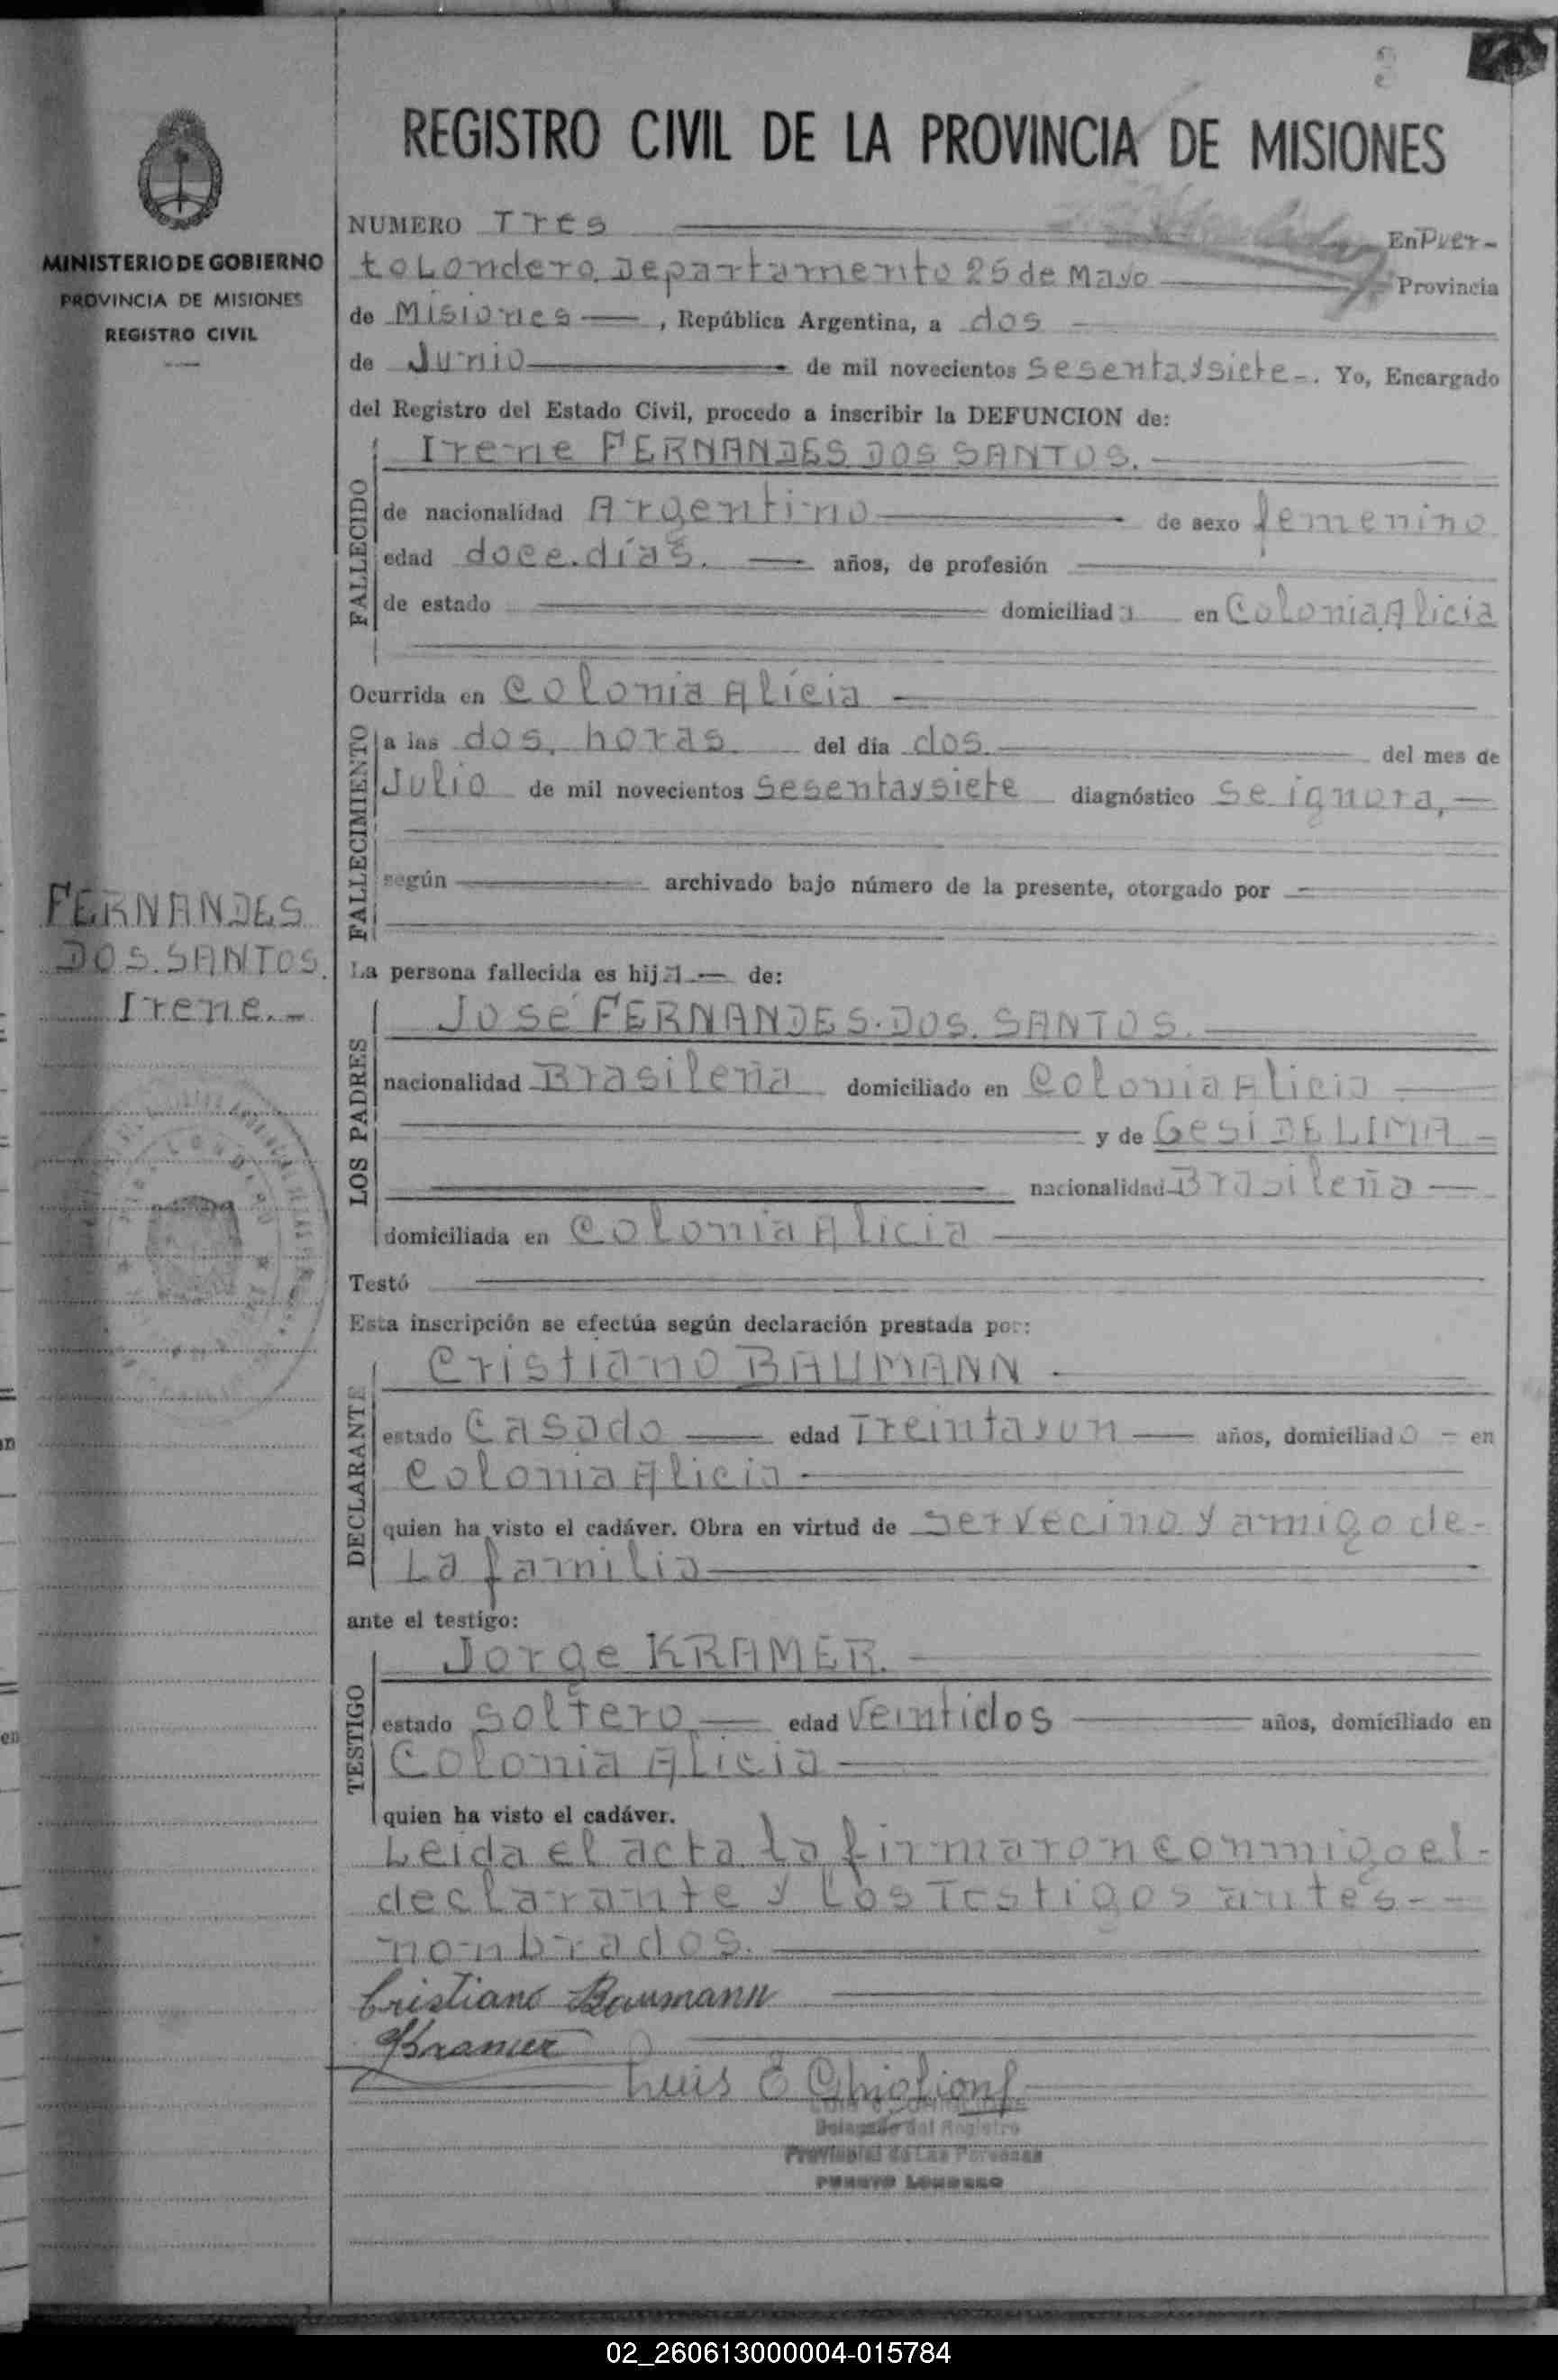 3
REGISTRO CIVIL DE LA PROVINCIA DE MISIONES
MINISTERIO DE GOBIERNO
PROVINCIA DE MISIONES
REGISTRO CIVIL
NUMERO Tres En Puer-
to Londero, Departamento 25 de Mayo Provincia
de Misiones , República Argentina, a dos
de Junio de mil novecientos sesenta y siete-. Yo, Encargado
del Registro del Estado Civil, procedo a inscribir la DEFUNCION de:
FALLECIDO
Irene FERNANDES DOS SANTOS.
de nacionalidad Argentino de sexo femenino
edad doce días. años, de profesión
de estado domiciliada en Colonia Alicia
Ocurrida en Colonia Alicia
FALLECIMIENTO
a las dos horas del día dos. del mes de
Julio de mil novecientos sesenta y siete diagnóstico se ignora,
según archivado bajo número de la presente, otorgado por
FERNANDES
DOS SANTOS.
Irene.-
La persona fallecida es hija de:
LOS PADRES
José FERNANDES DOS SANTOS.
nacionalidad Brasileña domiciliado en Colonia Alicia
y de Gesi DE LIMA
nacionalidad Brasileña
domiciliada en Colonia Alicia
Testó
Esta inscripción se efectúa según declaración prestada por:
DECLARANTE
Cristiano BAUMANN
estado Casado edad Treinta y un años, domiciliado en
Colonia Alicia
quien ha visto el cadáver. Obra en virtud de ser vecino y amigo de-
La familia
ante el testigo:
TESTIGO
Jorge KRAMER.
estado soltero edad Veintidos años, domiciliado en
Colonia Alicia
quien ha visto el cadáver.
Leida el acta la firmaron conmigo el-
declarante y los Testigos antes--
nonbrados.
Cristiano Baumann
Kramer
Luis E Ghiglione
Delegado del Registro
Provincial de Las Personas
PUERTO LONDERO
02_260613000004-015784